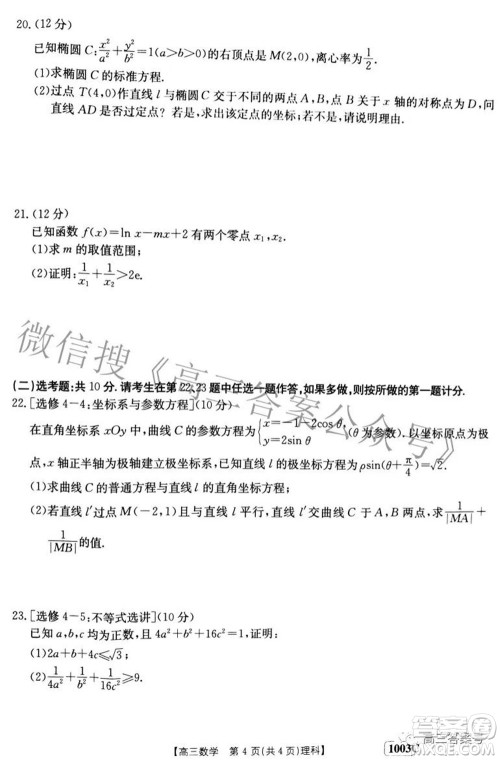 20.(12分)
已知椭圆C:x²/a²+y²/b²=1(a>b>0)的右顶点是M(2,0),离心率为1/2.
(1)求椭圆C的标准方程.
(2)过点T(4,0)作直线l与椭圆C交于不同的两点A,B,点B关于x轴的对称点为D,问
直线AD是否过定点?若是,求出该定点的坐标;若不是,请说明理由.
21.(12分)
已知函数f(x)=ln x-mx+2有两个零点x₁,x₂.
(1)求m的取值范围;
(2)证明:1/x₁+1/x₂>2e.
微信搜《高三答案公众号》
(二)选考题:共10分.请考生在第22,23题中任选一题作答,如果多做,则按所做的第一题计分.
22.[选修4-4:坐标系与参数方程](10分)
在直角坐标系xOy中,曲线C的参数方程为{x=-1-2cosθ, y=2sinθ (θ为参数).以坐标原点为极
点,x轴正半轴为极轴建立极坐标系,已知直线l的极坐标方程为ρsin(θ+π/4)=√2.
(1)求曲线C的普通方程与直线l的直角坐标方程;
(2)若直线l′过点M(-2,1)且与直线l平行,直线l′交曲线C于A,B两点,求1/|MA|+
1/|MB|的值.
23.[选修4-5:不等式选讲](10分)
已知a,b,c均为正数,且4a²+b²+16c²=1,证明:
(1)2a+b+4c≤√3;
(2)1/4a²+1/b²+1/16c²≥9.
【高三数学 第4页(共4页)理科】
1003C
高三答案号